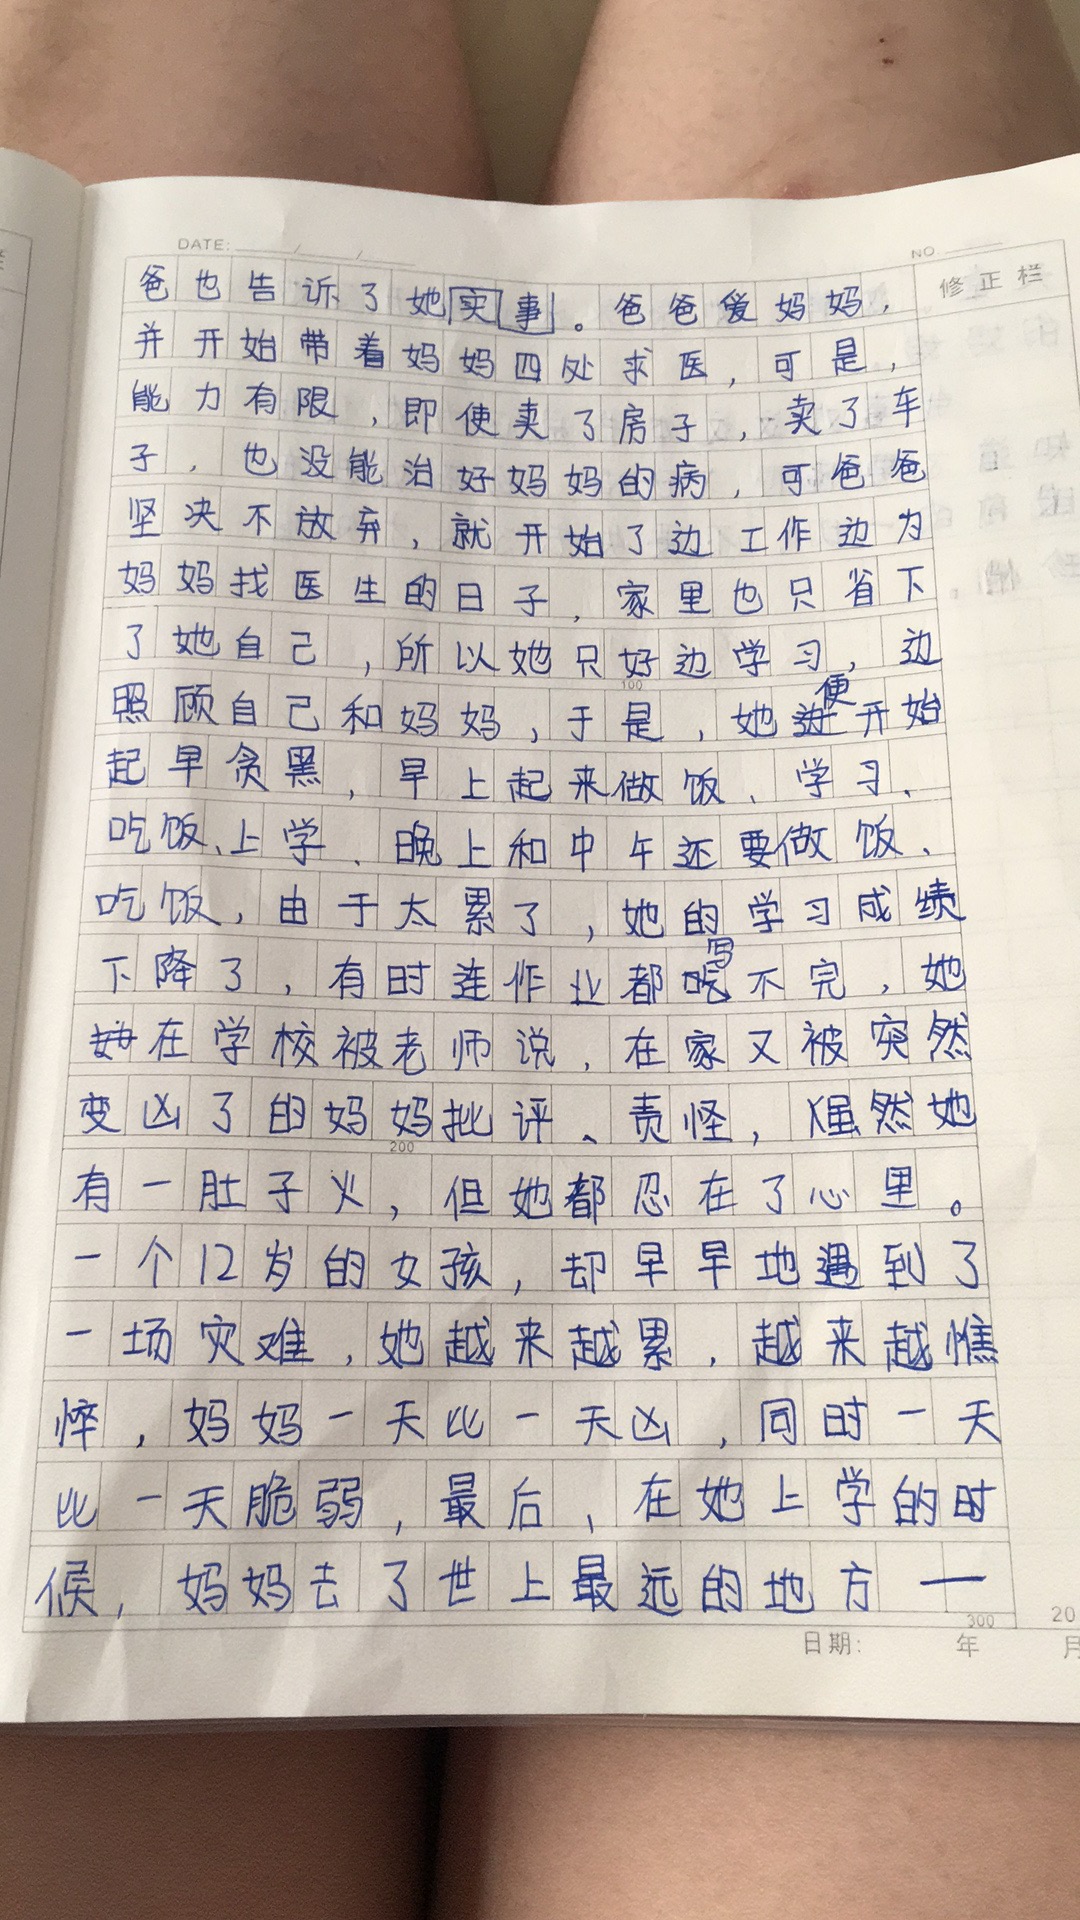 DATE: / /
NO.
修正栏
爸也告诉了她实事。爸爸爱妈妈，
并开始带着妈妈四处求医，可是，
能力有限，即使卖了房子，卖了车
子，也没能治好妈妈的病，可爸爸
坚决不放弃，就开始了边工作边为
妈妈找医生的日子，家里也只省下
了她自己，所以她只好边学习，边
100
照顾自己和妈妈，于是，她便开始
起早贪黑，早上起来做饭、学习、
吃饭、上学、晚上和中午还要做饭、
吃饭，由于太累了，她的学习成绩
下降了，有时连作业都写不完，她
在学校被老师说，在家又被突然
变凶了的妈妈批评、责怪，虽然她
200
有一肚子火，但她都忍在了心里。
一个12岁的女孩，却早早地遇到了
一场灾难，她越来越累，越来越憔
悴，妈妈一天比一天凶，同时一天
比一天脆弱，最后，在她上学的时
候，妈妈去了世上最远的地方—
300
日期： 年 月
20